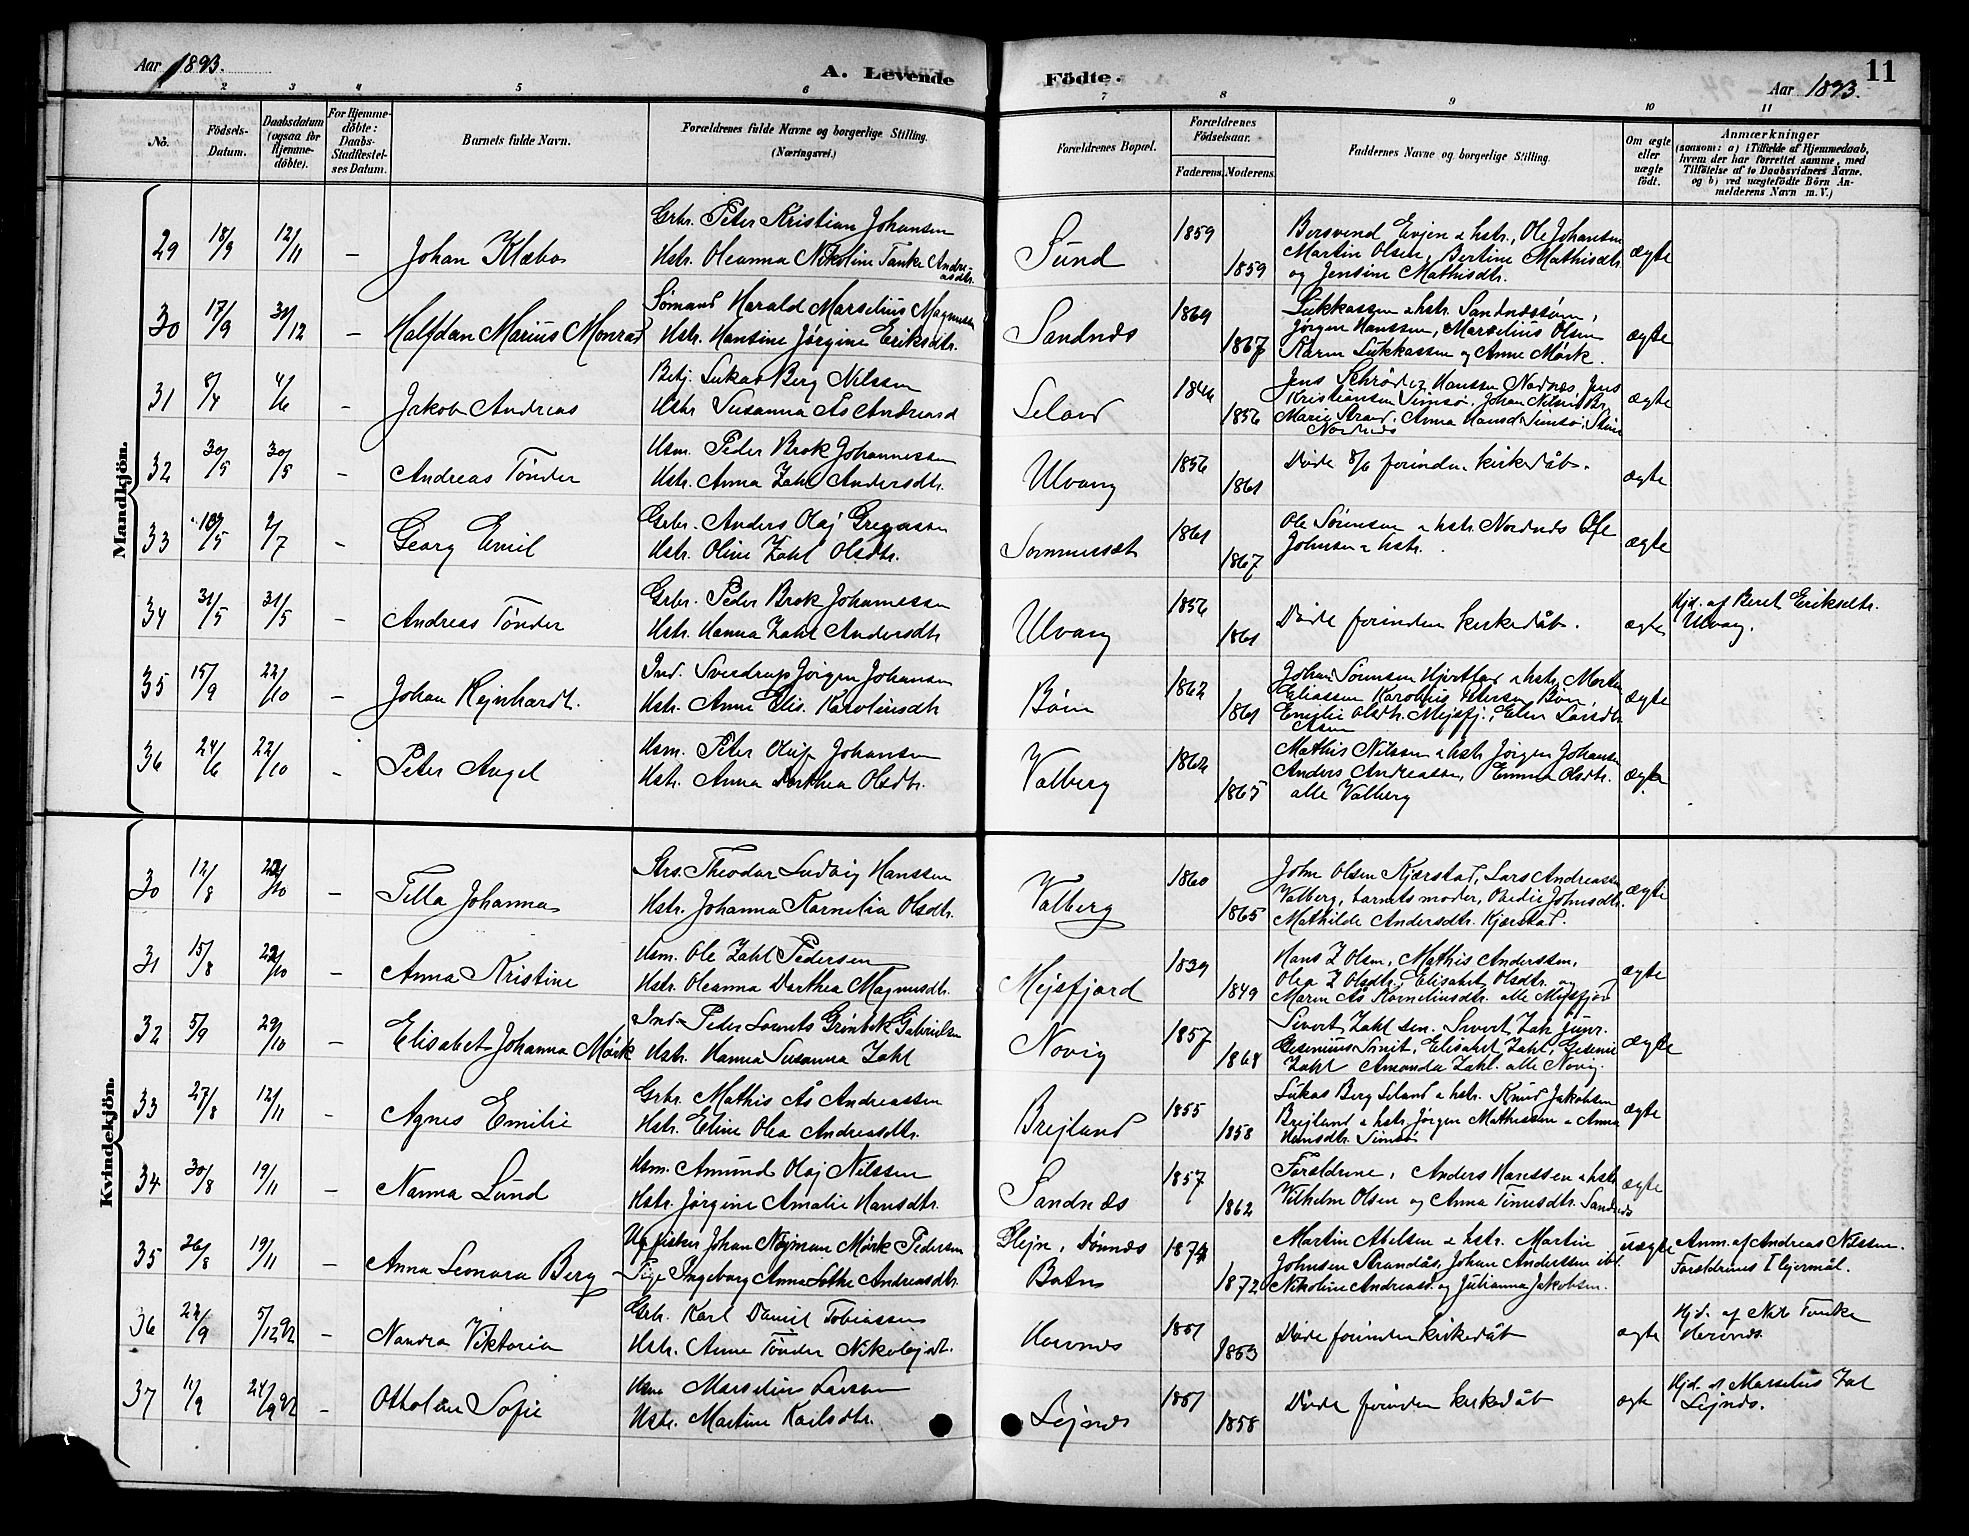 Aar 1893.
A. Levende Födte.
11
Aar 1893.
1 2 3 4 5 6 7 8 9 10 11
No.
Födsels-
Datum.
Daabsdatum
(ogsaa for
Hjemme-
döbte).
For Hjemme-
döbte:
Daabs-
Stadfæstel-
ses Datum.
Barnets fulde Navn.
Forældrenes fulde Navne og borgerlige Stilling.
(Næringsvei.)
Forældrenes Bopæl.
Forældrenes
Födselsaar.
Faderens. Moderens.
Faddernes Navne og borgerlige Stilling.
Om ægte
eller
uægte
født.
Anmærkninger
(saasom: a) i Tilfælde af Hjemmedaab,
hvem der har forrettet samme, med
Tilføielse af to Daabsvidners Navne.
og b) ved uægtefödte Börn An-
melderens Navn m. V.)
Mandkjön.
29 18/9 12/11 – Johan Klæbo
Grbr. Peter Kristian Johansen
Hstr. Oleanna Nikoline Tanke Andre-
asdtr.
Sund 1859 1859
Bersvend Evjen & hstr., Ole Johansen
Martin Olsen, Bertine Mathisdtr.
og Jensine Mathisdtr.
ægte
30 17/9 31/12 – Halfdan Marius Monrad
Sømand Harald Marselius Magnussen
Hstr. Hansine Jørgine Eriksdtr.
Sandnæs 1869 1867
Lukkassen & hstr. Sandnæssøen,
Jørgen Hanssen, Marselius Olsen
Karen Lukkassen og Anne Mørk.
ægte
31 8/4 4/6 – Jakob Andreas
Betj. Lukas Berg Nilssen
Hstr Susanna Ås Andreasd
Seland 1856
Jens Schrøder Hanssen Nordnæs, Jens
Kristiansen Simsø, Johan Nilsen
Marie Strand, Anna Hansd Simsø,
Nordnæs
ægte
32 30/5 30/5 – Andreas Tønder
Hsm. Peder Brok Johannessen
Hstr. Anna Zahl Andersdtr.
Ulvang 1856 1861
Døde 8/6 forinden kirkedåb.
ægte
33 2/7 – Georg Emil
Grbr. Anders Olaj Gregussen
Hstr. Oline Zahl Olsdtr.
Sommerset 1861 1867
Ole Sørensen & hstr Nordnæs Ole
Johnsen & hstr.
ægte
34 31/5 31/5 – Andreas Tønder
Grbr. Peder Brok Johannessen
Hstr. Hanna Zahl Andersdtr
Ulvang 1856 1861
Døde forinden kirkedåb.
ægte
Hjd. af Beret Eriksdtr.
Ulvang.
35 15/9 22/10 – Johan Rejnhardt.
Ind. Sverdrup Jørgen Johansen
Hstr. Anne Elis. Karolinsdtr
Bøen 1862 1861
Johan Sørensen Hjortfar & hstr, Morten
Eliassen Karolius Petersen Bøen,
Emilie Olsdtr. Mejsfj., Elen Larsdtr
Åsen
ægte
36 24/6 22/10 – Peter Angel
Hsm. Peter Oluf Johansen
Hstr. Anna Dorthea Olsdtr.
Valberg 1865
Mathis Nilssen & hstr Jørgen Johansen
Anders Andreassen, Emma Olsdtr.
alle Valberg
ægte
Kvindekjön.
30 12/8 22/10 – Tella Johanna
Strs. Theodor Ludvig Hanssen
Hstr. Johanna Kornelia Olsdtr.
Valberg 1860 1865
John Olsen Kjærstad, Lars Andreassen
Valberg, barnets moder, Johnsdtr.
Mathilde Andersdtr. Kjærstad.
ægte
31 15/8 22/10 – Anna Kristine
Hsm. Ole Zahl Pedersen
Hstr. Oleanna Dorthea Magnusdtr.
Mejsfjord 1839 1849
Hans Z Olsen, Mathis Anderssen,
Olea Z Olsdtr. Elisabet Olsdtr. og
Maren Ås Korneliusdtr. alle Mejsfjord
ægte
32 5/9 29/10 – Elisabet Johanna Mørk
Ind. Peder Lorents Grönbek Gabrielsen
Hstr. Hanna Susanna Zahl
Novig 1857 1864
Sivert Zahl sen. Sivert Zahl junr.
Gesenius Smit, Elisabet Zahl, Gesenie
Zahl Amanda Zahl. alle Novig.
ægte
33 27/8 12/11 – Agnes Emilie
Grbr. Mathis Ås Andreassen
Hstr. Eline Olea Andreasdtr.
Brejland 1855 1858
Lukas Berg Seland & hstr. Knud Jakobsen
Brejland & hstr Jørgen Mathissen & Anna
Hansdtr. Simsø
ægte
34 30/8 19/11 – Nanna Lund
Hsm. Amund Olaj Nilssen
Hstr. Jørgine Amalie Hansdtr.
Sandnæs 1857 1862
Forældrene, Anders Hanssen & hstr
Vilhelm Olsen og Anna Tinusdtr. Sandnæs
ægte
35 26/8 19/11 – Anna Leonora Berg
Ug fisker Johan Nojman Mørk Pedersen
Pige Ingeborg Anna Lothe Andreasdtr.
Glejn, Dønnæs
Botn 1874 1872
Martin Abelsen & hstr. Martin
Johnsen Strandås, Johan Anderssen ibd.
Nikoline Andreasd. og Julianna Jakobsen.
uægte
Anm. af Andreas Nilssen.
Forældrenes I lejermål.
36 22/9 5/12 92 – Nandra Viktoria
Grbr. Karl Daniel Tobiassen
Hstr. Anne Tønder Nikolajsdt.
Hernæs 1851 1853
Døde forinden kirkedåb
ægte
Hjd. af Nils Tanke
37 11/9 24/9 92 – Otholine Sofie
Hsm Marselius Larsen
Hstr. Martine Karlsdtr.
Lejnæs 1851 1858
Døde forinden kirkedåb
ægte
Hjd. af Marselius Zal
Lejnæs.